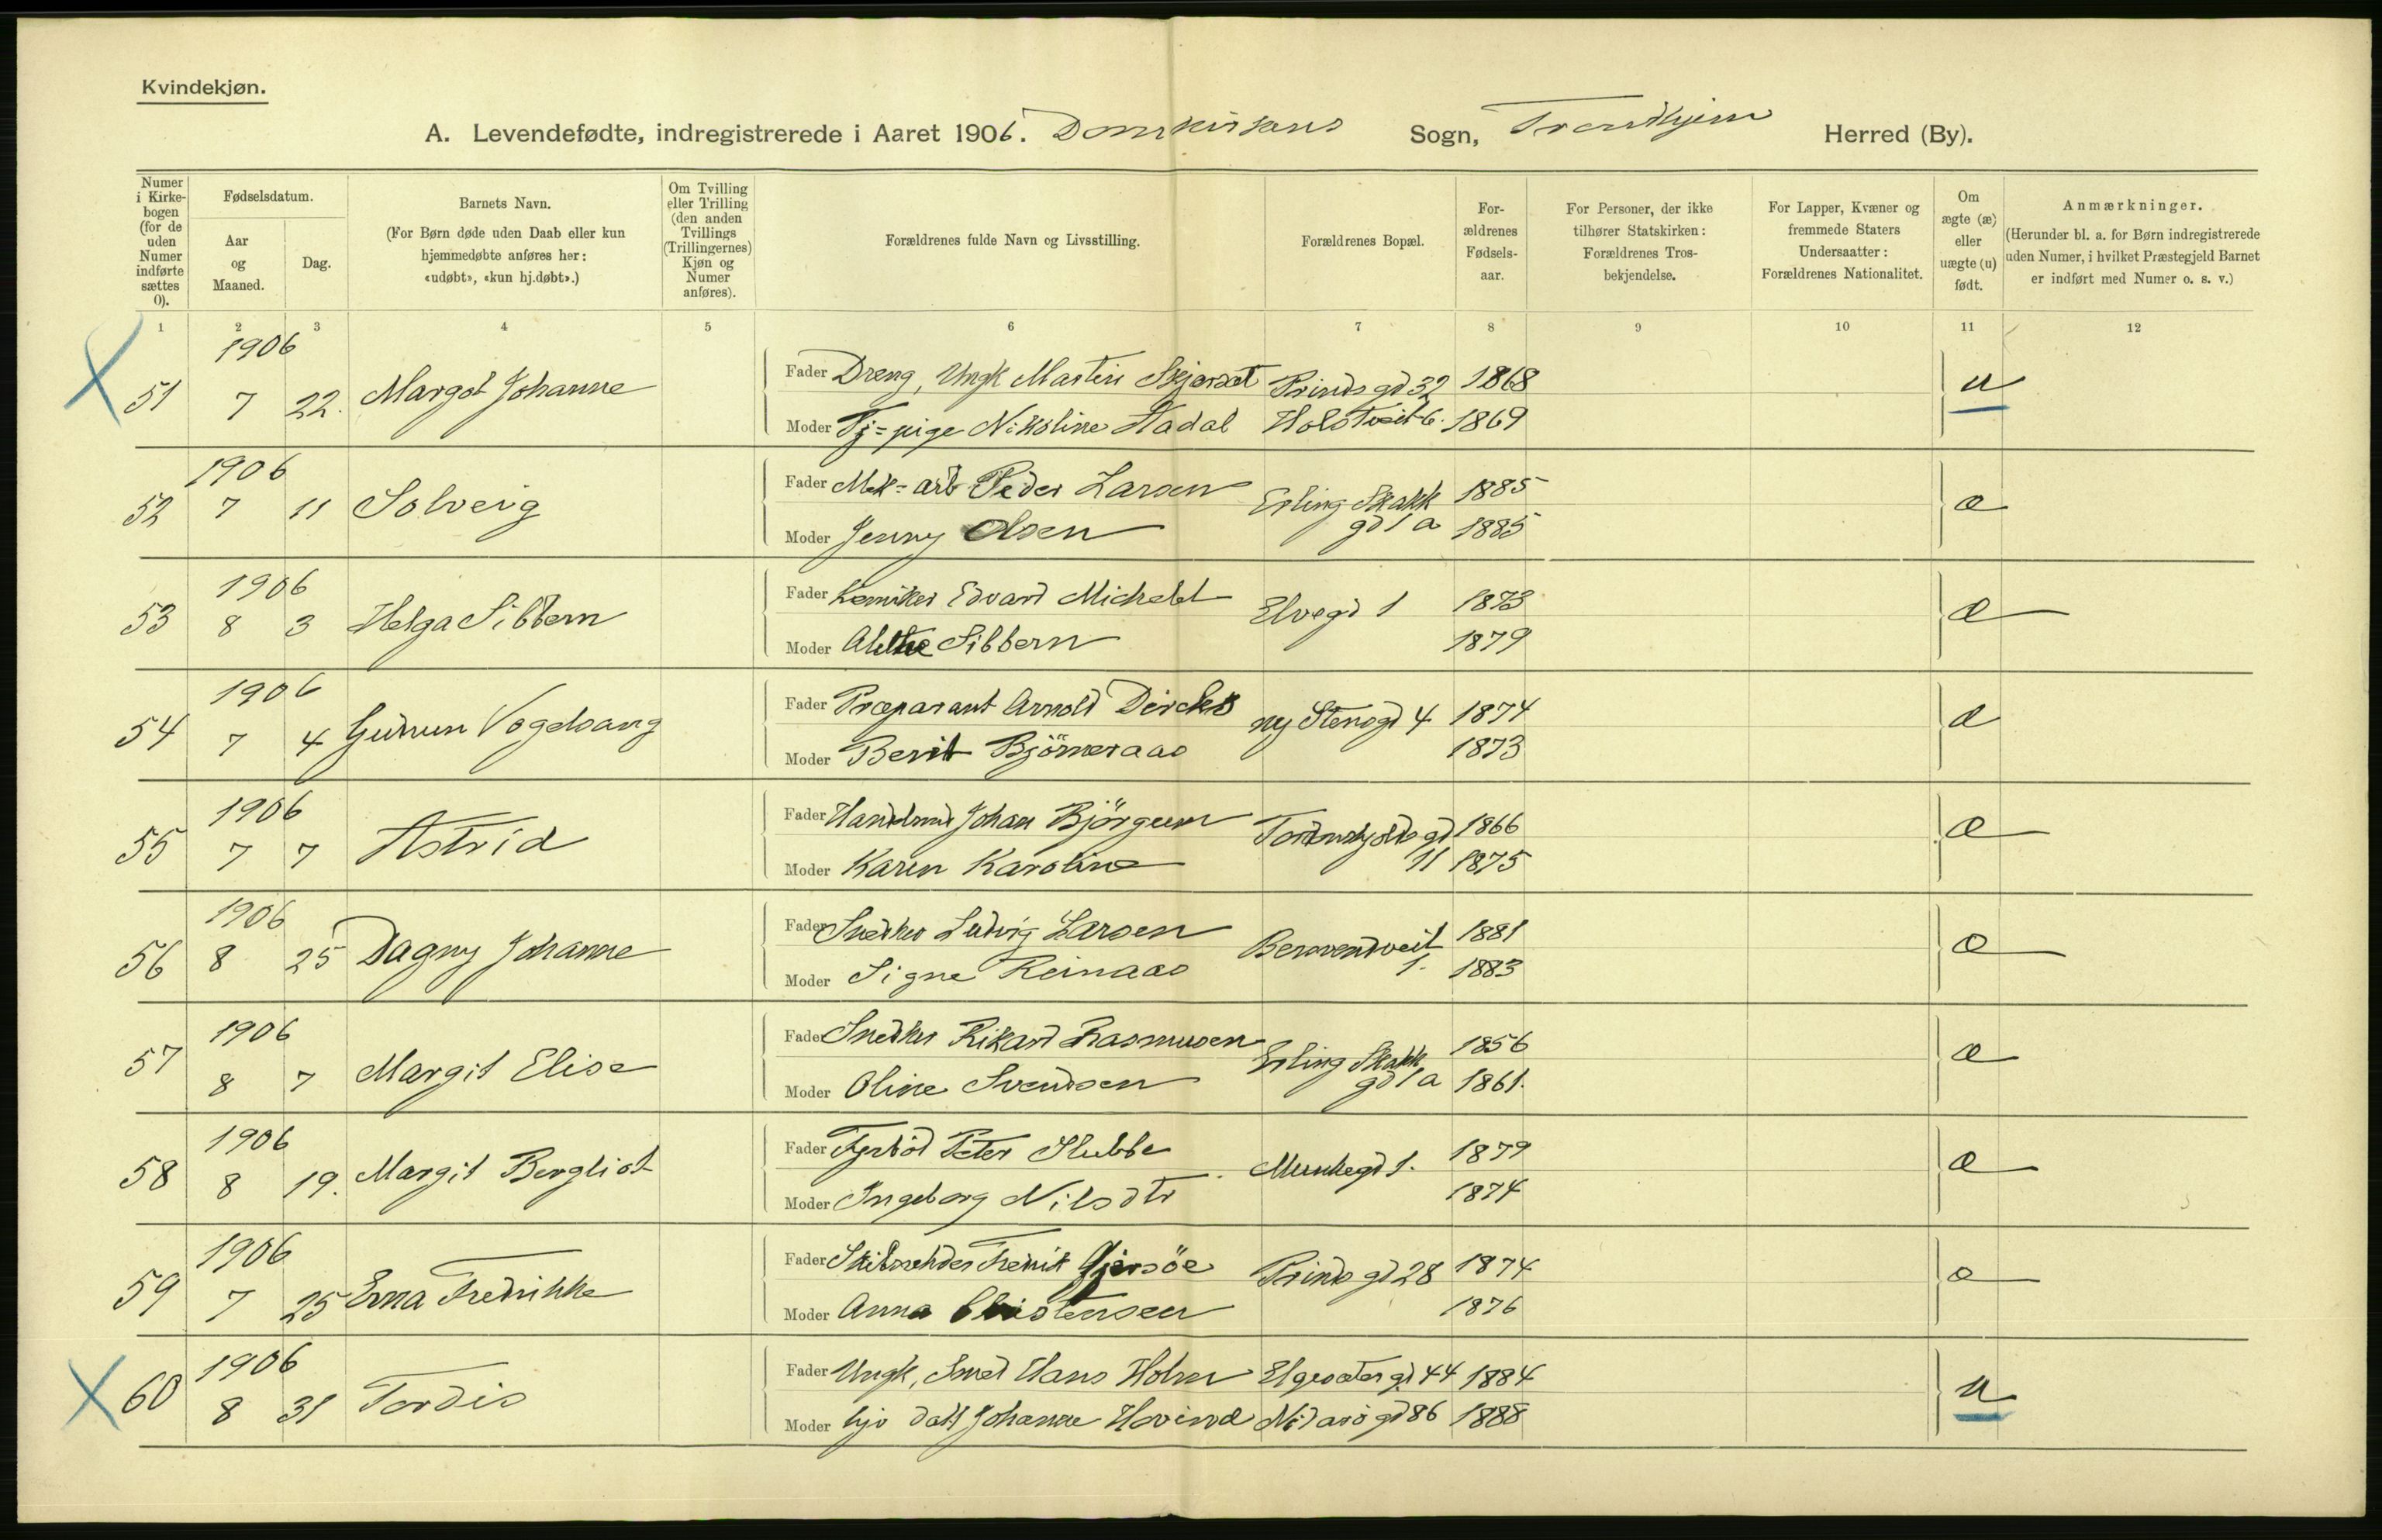 Kvindekjøn.
A. Levendefødte, indregistrerede i Aaret 1906. Domkirkens Sogn, Trondhjem Herred (By).
Numer i Kirkebogen (for de uden Numer indførte sættes 0).
Fødselsdatum.
Aar og Maaned.
Dag.
Barnets Navn.
(For Børn døde uden Daab eller kun hjemmedøbte anføres her: «udøbt», «kun hj.døbt».)
Om Tvilling eller Trilling (den anden Tvillings (Trillingernes) Kjøn og Numer anføres).
Forældrenes fulde Navn og Livsstilling.
Forældrenes Bopæl.
Forældrenes Fødselsaar.
For Personer, der ikke tilhører Statskirken: Forældrenes Trosbekjendelse.
For Lapper, Kvæner og fremmede Staters Undersaatter: Forældrenes Nationalitet.
Om ægte (æ) eller uægte (u) født.
Anmærkninger.
(Herunder bl. a. for Børn indregistrerede uden Numer, i hvilket Præstegjeld Barnet er indført med Numer o. s. v.)
1 2 3 4 5 6 7 8 9 10 11 12
1906
51 7 22. Margot Johanne Fader Dreng, Ungk Martin Prinds gd 32 1868 u
Moder Tj=pige Nikoline Aadal 1869
1906
52 7 11 Solveig Fader Mek=arb Peder Larsen Erling Skakk 1885 æ
Moder Jenny Olsen gd 1 a 1885
1906
53 8 3 Helga Sibbern Fader Kemiker Edvard Michelet Elvegd 1 1873 æ
Moder Alethe Sibbern 1879
1906
54 7 4 Gudrun Vogelsang Fader Præparant Arnold Dircks ny Stensgd 4 1874 æ
Moder Berit Björneraas 1873
1906
55 7 7 Astrid Fader Handelsmd Johan Björgum Tordenskjolds gd 1866 æ
Moder Karen Karoline 11 1875
1906
56 8 25 Dagny Johanne Fader Snedker Ludvig Larsen 1881 æ
Moder Signe Reinaas 1. 1883
1906
57 8 7 Margit Elise Fader Snedker Rikard Rasmusen Erling Skakk 1856 æ
Moder Oline Svendsen gd 1 a 1861.
1906
58 8 19. Margit Bergliot Fader Fyrbød Peter Stubbe Munkegd 1. 1879 æ
Moder Ingeborg Nilsdtr 1874
1906
59 7 25 Erna Fredrikke Fader Fredrik Gjersöe Prinds gd 28 1874 æ
Moder Anna Christensen 1876
1906
60 8 31 Tordis Fader Ungk, Smed Hans Holm Elgesæter gd 44 1884 u
Moder hjv datt Johanne Hovind Nidarö gd 86 1888